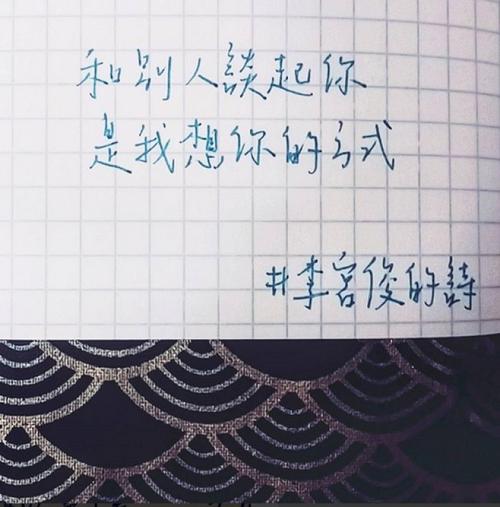 和別人談起你
是我想你的方式
#李宮俊的詩